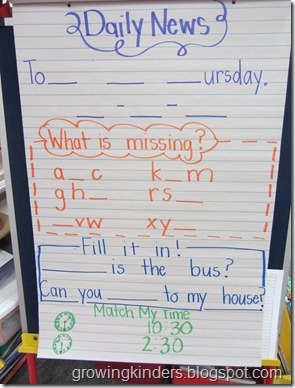 Daily News
To__ ___ ____ursday.
___-___-___
What is missing?
a_c k_m
gh_ rs_
_vw xy_
Fill it in!
______ is the bus?
Can you ______ to my house?
Match My Time
10:30
2:30
growingkinders.blogspot.com